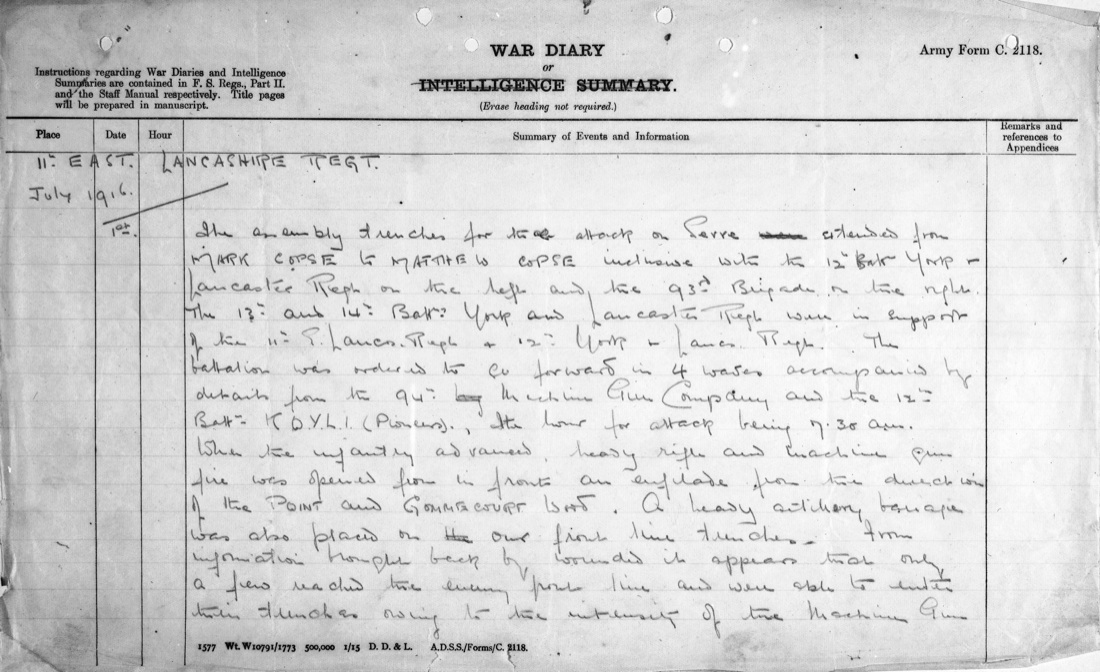 WAR DIARY
or
INTELLIGENCE SUMMARY.
(Erase heading not required.)
Army Form C. 2118.
Instructions regarding War Diaries and Intelligence
Summaries are contained in F. S. Regs., Part II.
and the Staff Manual respectively. Title pages
will be prepared in manuscript.
Place Date Hour Summary of Events and Information Remarks and references to Appendices
11th EAST. LANCASHIRE REGT.
July 1916.
1st.
The assembly trenches for the attack on Serre extended from
MARK COPSE to MATTHEW COPSE inclusive with the 12th Batt York &
Lancaster Regt on the left and the 93rd Brigade on the right.
The 13th and 14th Battns York and Lancaster Regt were in support
of the 11th E. Lancs. Regt & 12th York & Lancs. Regt. The
battalion was ordered to go forward in 4 waves accompanied by
details from the 94th Machine Gun Company and the 12th
Battn K.O.Y.L.I. (Pioneers)., the hour for attack being 7.30 a.m.
When the infantry advanced, heavy rifle and machine gun
fire was opened from in front an enfilade from the direction
of the POINT and GOMMECOURT Wood. A heavy artillery barrage
was also placed on our front line trenches. From
information brought back by wounded it appears that only
a few reached the enemy front line and were able to enter
their trenches owing to the intensity of the Machine Gun
1577 Wt. W10791/1773 500,000 1/15 D. D. & L. A.D.S.S./Forms/C. 2118.